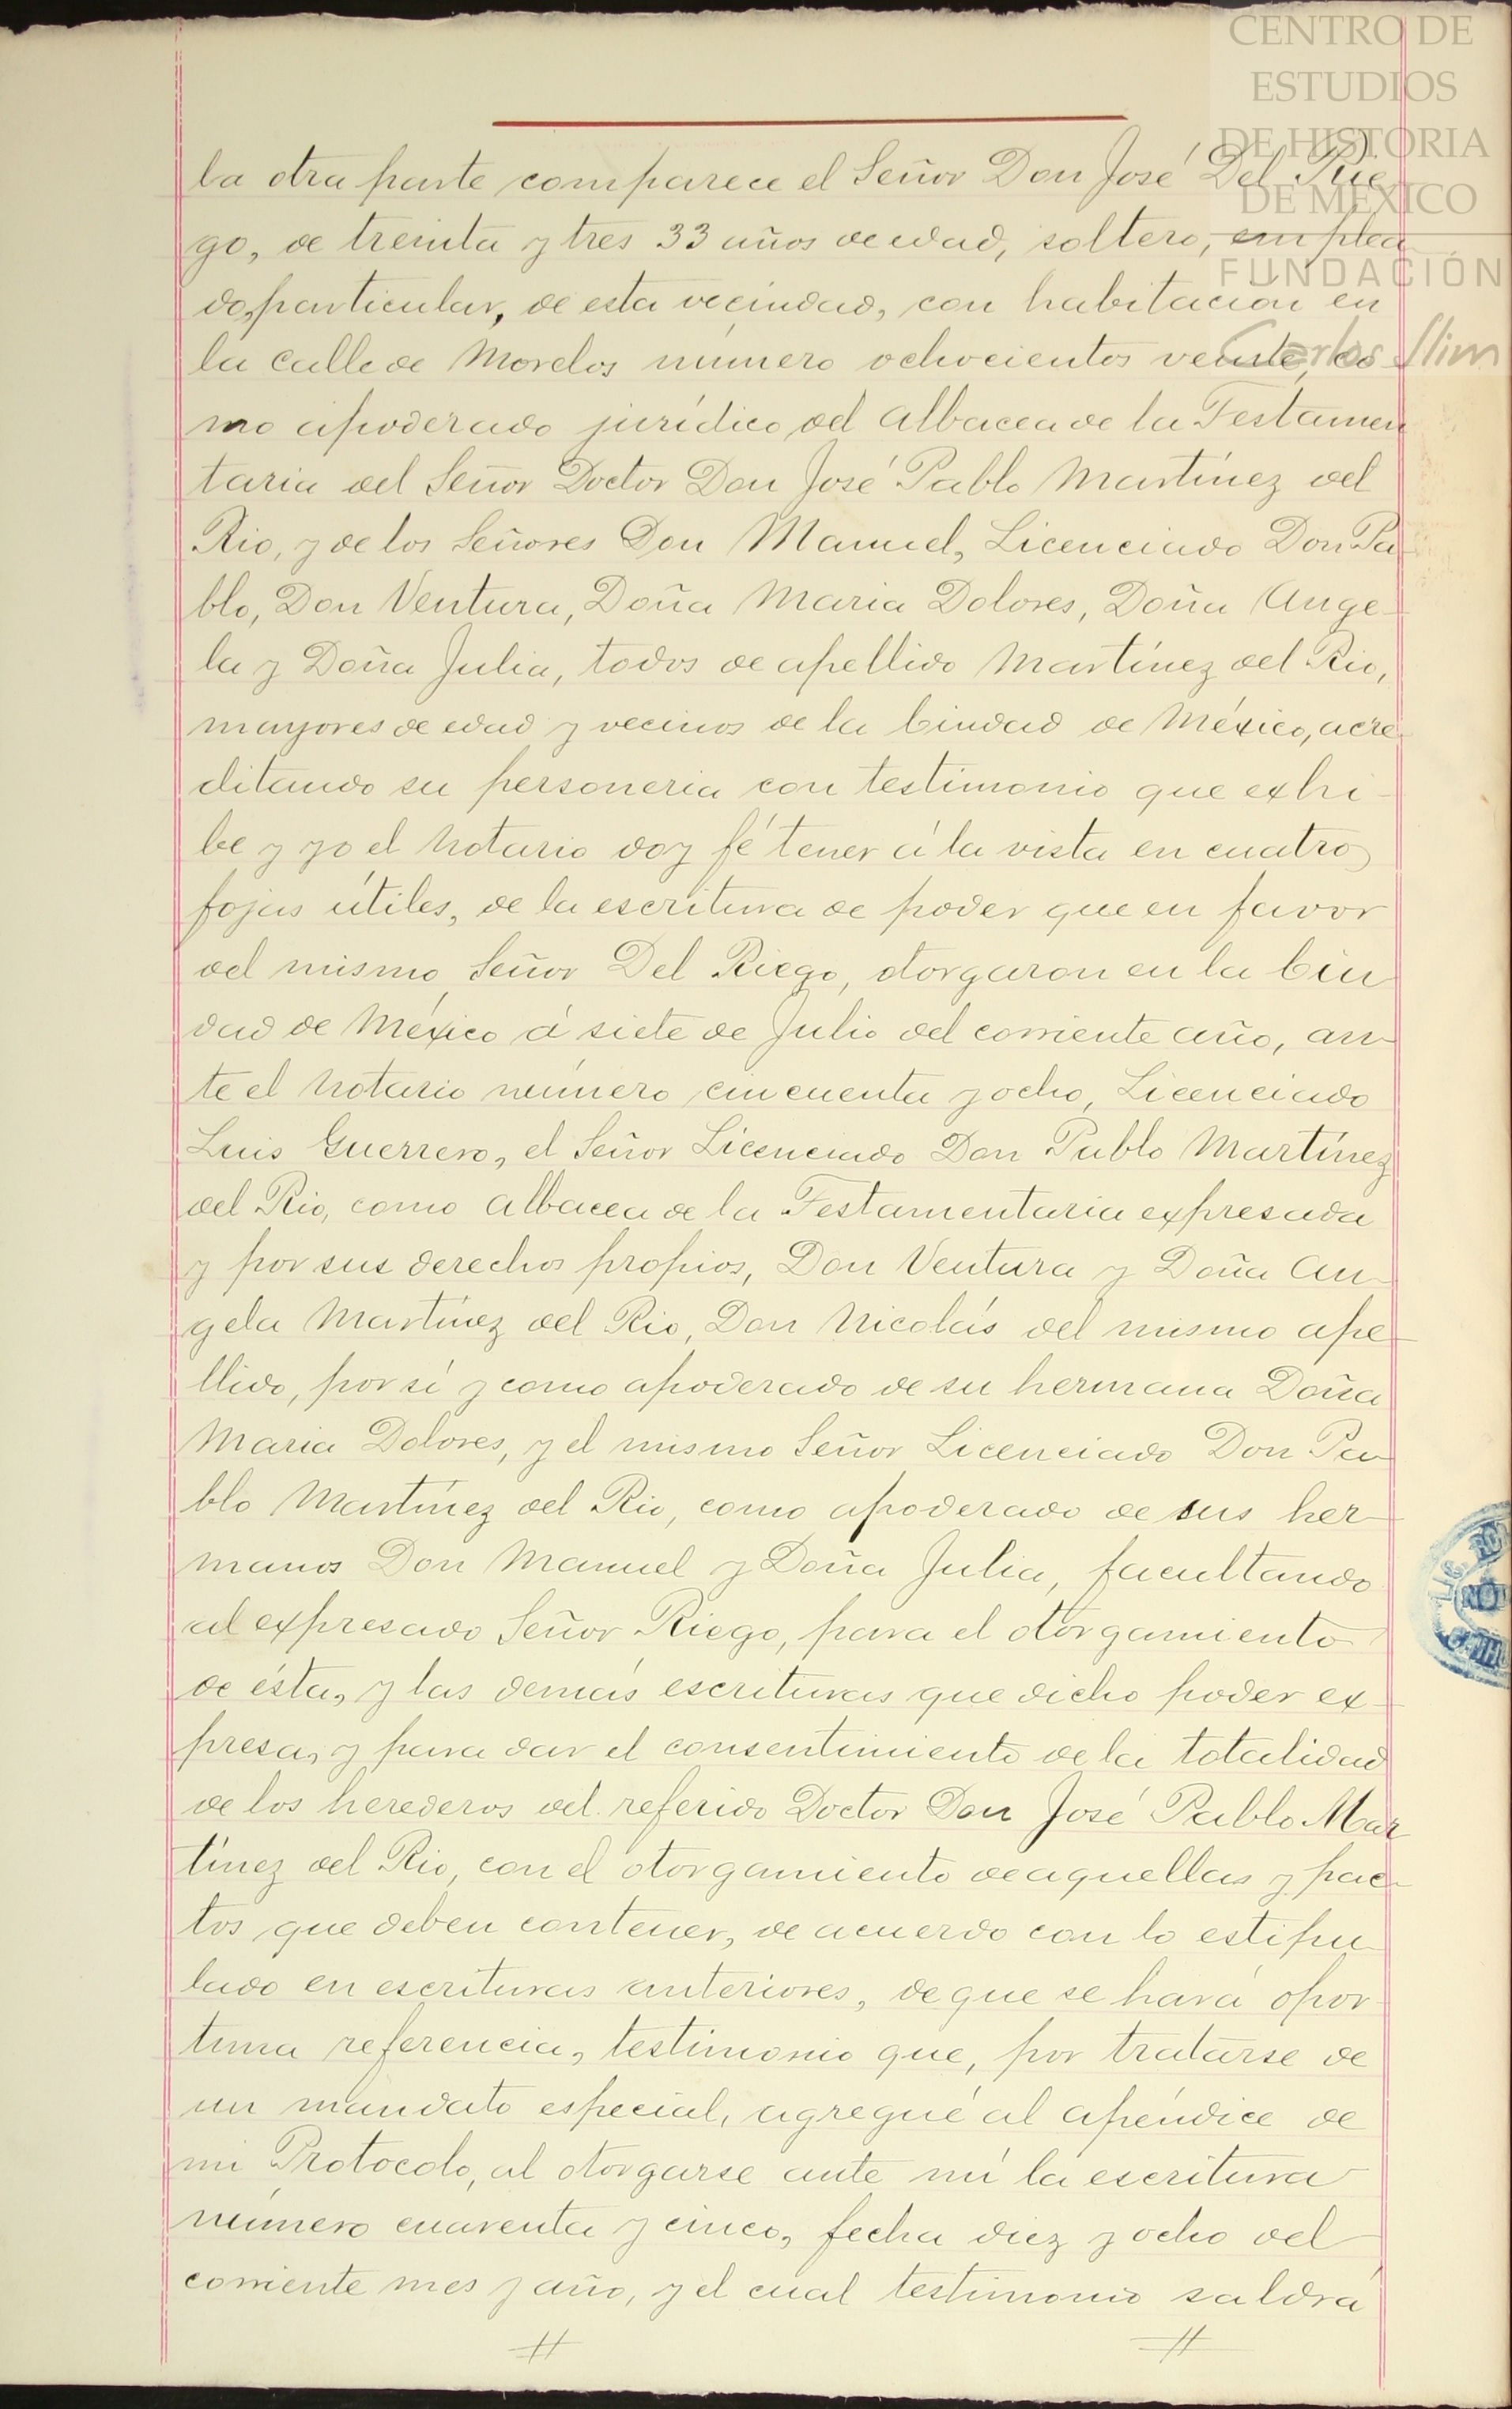 CENTRO DE
ESTUDIOS
DE HISTORIA
DE MÉXICO
FUNDACIÓN
Carlos Slim
la otra parte comparece el Señor Don José Del Rie
go, de treinta y tres 33 años de edad, soltero, emplea
do particular, de esta vecindad, con habitacion en
la calle de Morelos número ochocientos veinte, co
mo apoderado jurídico del Albacea de la Testamen
taria del Señor Doctor Don José Pablo Martínez del
Rio, y de los Señores Don Manuel, Licenciado Don Pa
blo, Don Ventura, Doña Maria Dolores, Doña Ange-
la y Doña Julia, todos de apellido Martínez del Rio,
mayores de edad y vecinos de la Ciudad de México, acre
ditando su personeria con testimonio que exhi-
be y yo el Notario doy fé tener á la vista en cuatro
fojas útiles, de la escritura de poder que en favor
del mismo Señor Del Riego, otorgaron en la Ciu
dad de México á siete de Julio del corriente año, an-
te el Notario número cincuenta y ocho, Licenciado
Luis Guerrero, el Señor Licenciado Don Pablo Martínez
del Rio, como Albacea de la Testamentaria expresada
y por sus derechos propios, Don Ventura y Doña An-
gela Martínez del Rio, Don Nicolás del mismo ape-
llido, por sí y como apoderado de su hermana Doña
Maria Dolores, y el mismo Señor Licenciado Don Pa-
blo Martínez del Rio, como apoderado de sus her-
manos Don Manuel y Doña Julia, facultando
al expresado Señor Riego, para el otorgamiento
de ésta, y las demás escrituras que dicho poder ex-
presa, y para dar el consentimiento de la totalidad
de los herederos del referido Doctor Don José Pablo Mar
tínez del Rio, con el otorgamiento de aquellas y pac-
tos que deben contener, de acuerdo con lo estipu-
lado en escrituras anteriores, de que se hará opor-
tuna referencia, testimonio que, por tratarse de
un mandato especial, agregué al apéndice de
mi Protocolo, al otorgarse ante mí la escritura
número cuarenta y cinco, fecha diez y ocho del
corriente mes y año, y el cual testimonio saldrá
LIC. RO